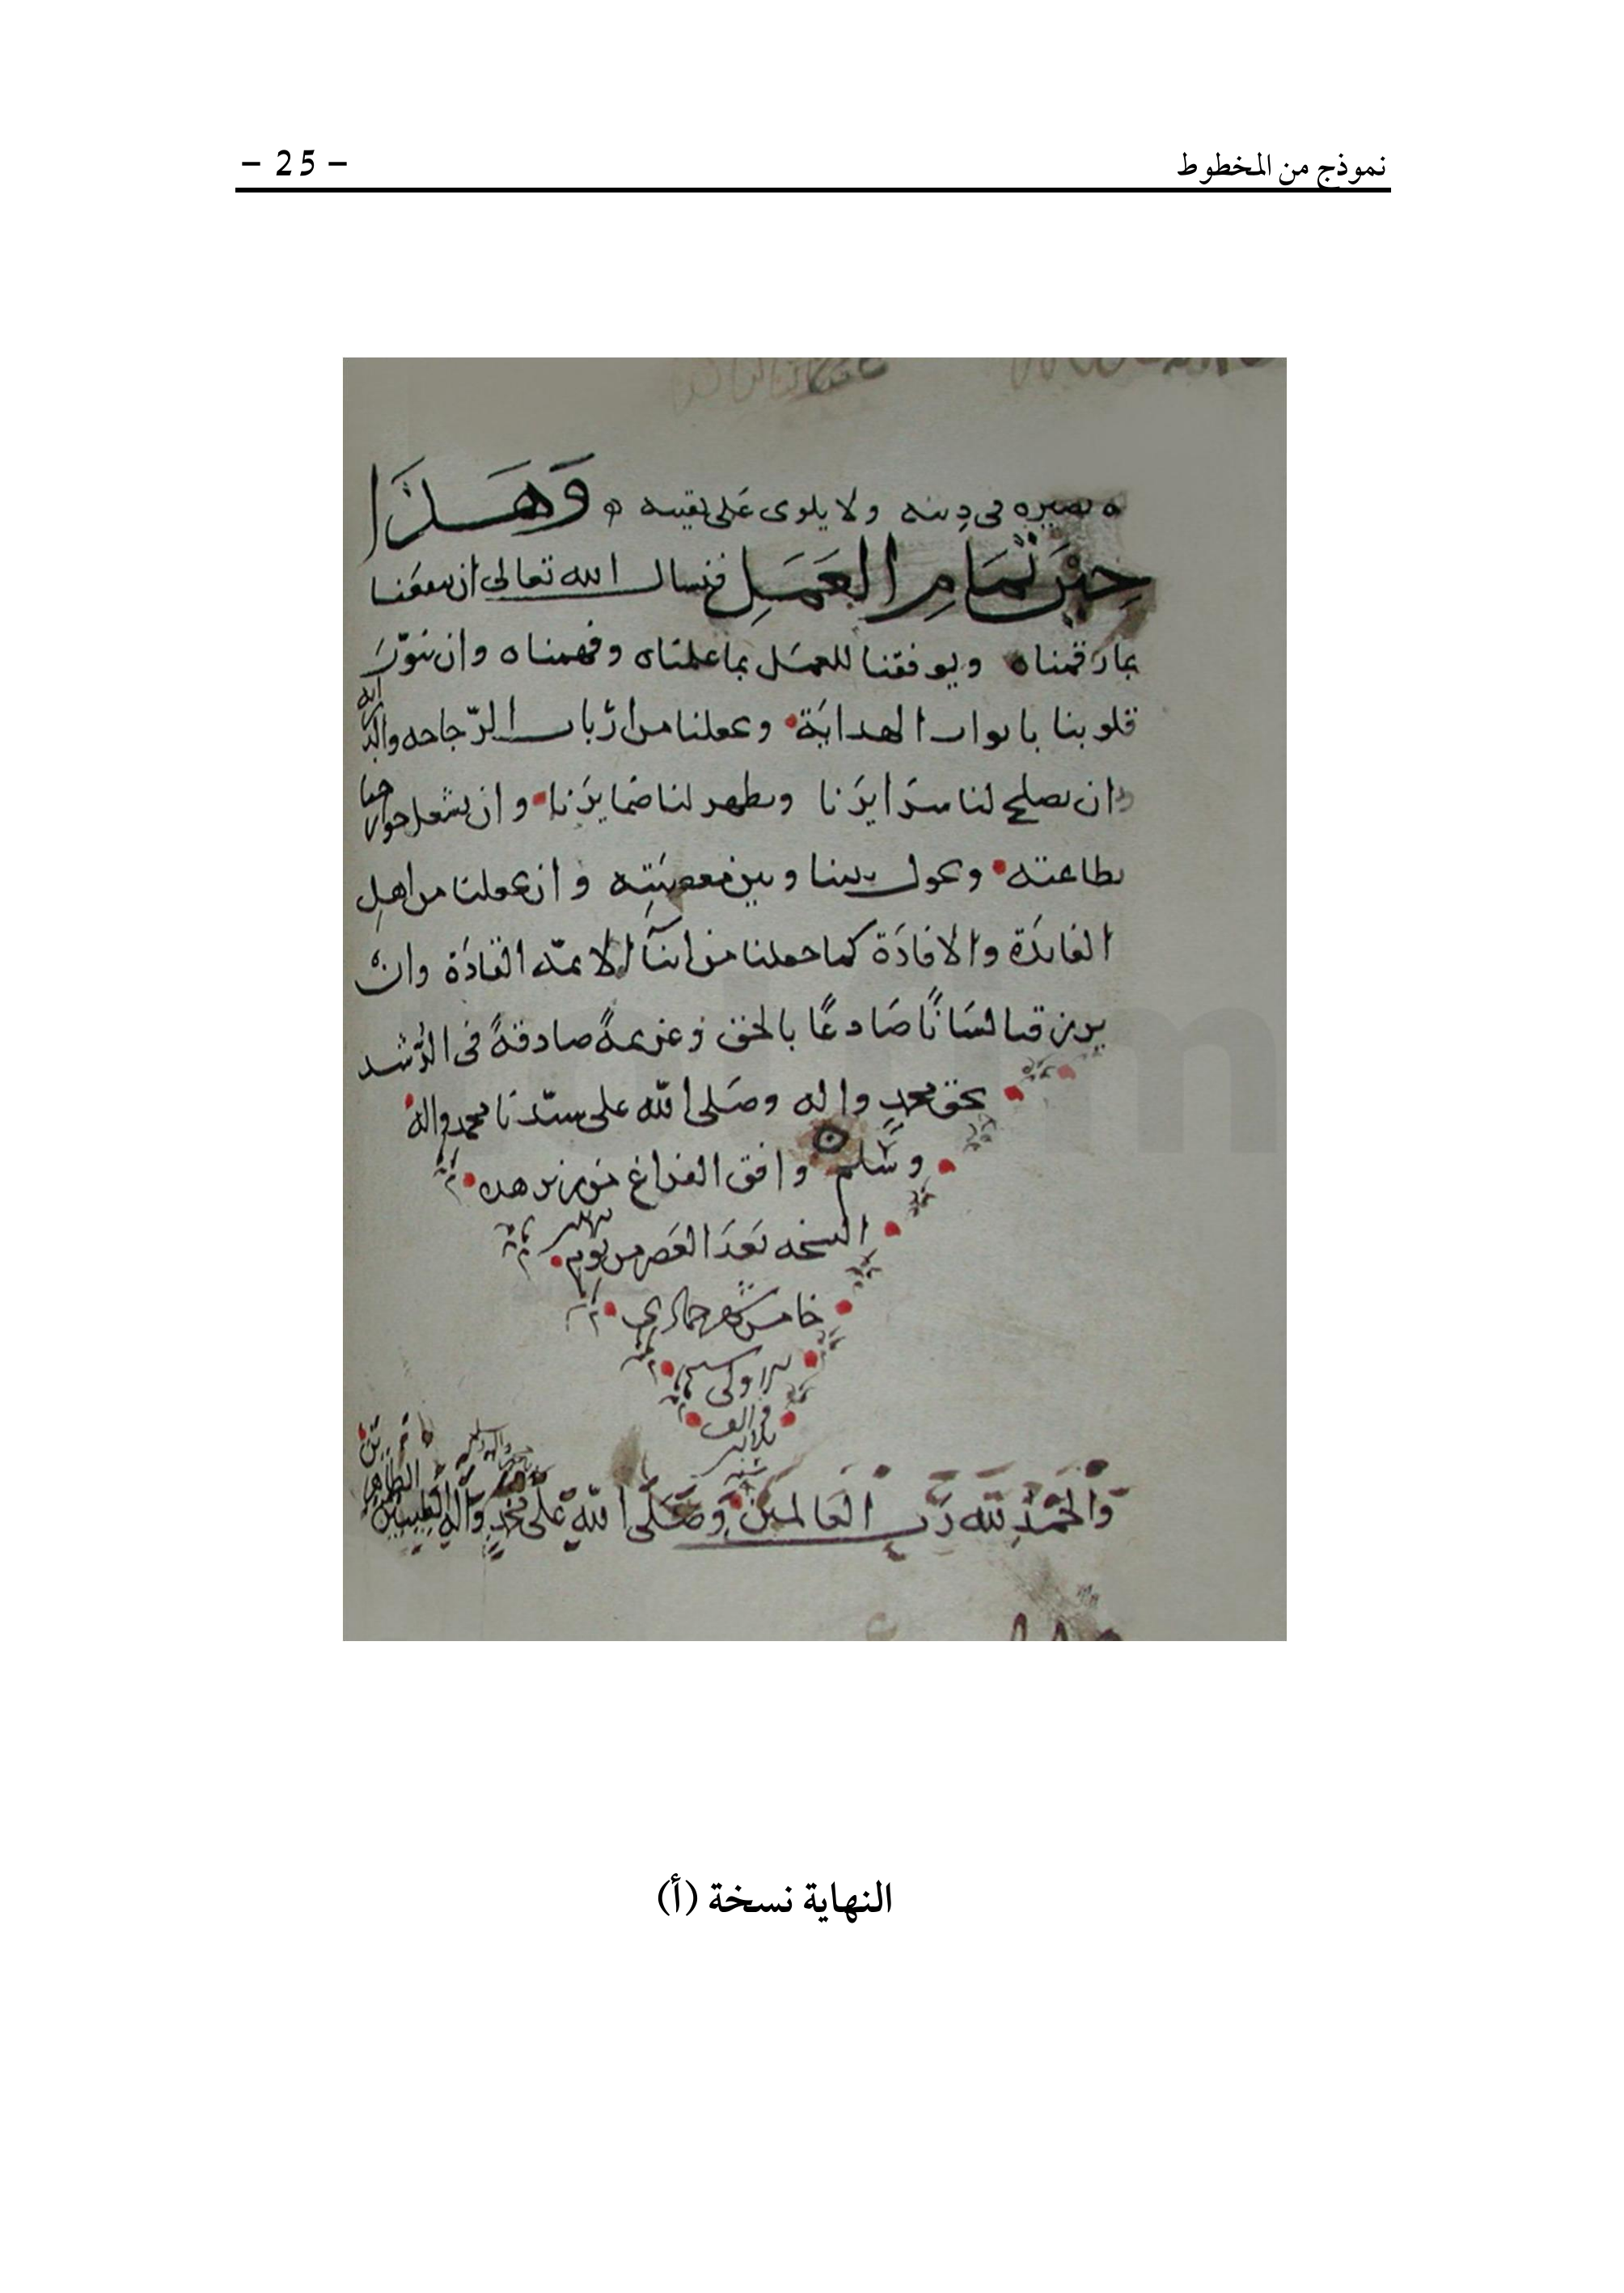 نموذج من المخطوط
– 25 –
بصيره في دينه ولا يلوى على يقينه وَهَذَا
حِيْنَ تَمَامِ العَمَلِ فنسال الله تعالى ان ينفعنا
بما رقمناه ويوفقنا للعمل بما علمناه وفهمناه وان ينوّر
قلوبنا بانوار الهداية وجعلنا من ارباب الرّجاحه والدراية
وان يصلح لنا سرايرنا ويطهر لنا ضمايرنا وان يشغل جوارحنا
بطاعته ويحول بيننا وبين معصيته وان يجعلنا من اهل
الفايدة والافادة كما جعلنا من ابنآء الايمّه القادة وان
يرزقنا لسانًا صادعًا بالحق وعزيمةً صادقةً في الرّشد
بحق محمدٍ واله وصَلى الله على سيّدنا محمد واله
وسلم وافق الفراغ من زبر هده
النسخه بَعدَ العَصر من يوم
خامس شهر جمادى
الف
وَالحَمْدُ لله رَبِّ العَالمينَ وَصَلَّى اللهُ عَلَى مُحَمَّدٍ وَآلِهِ الطيبين
الطاهرين
النهاية نسخة (أ)